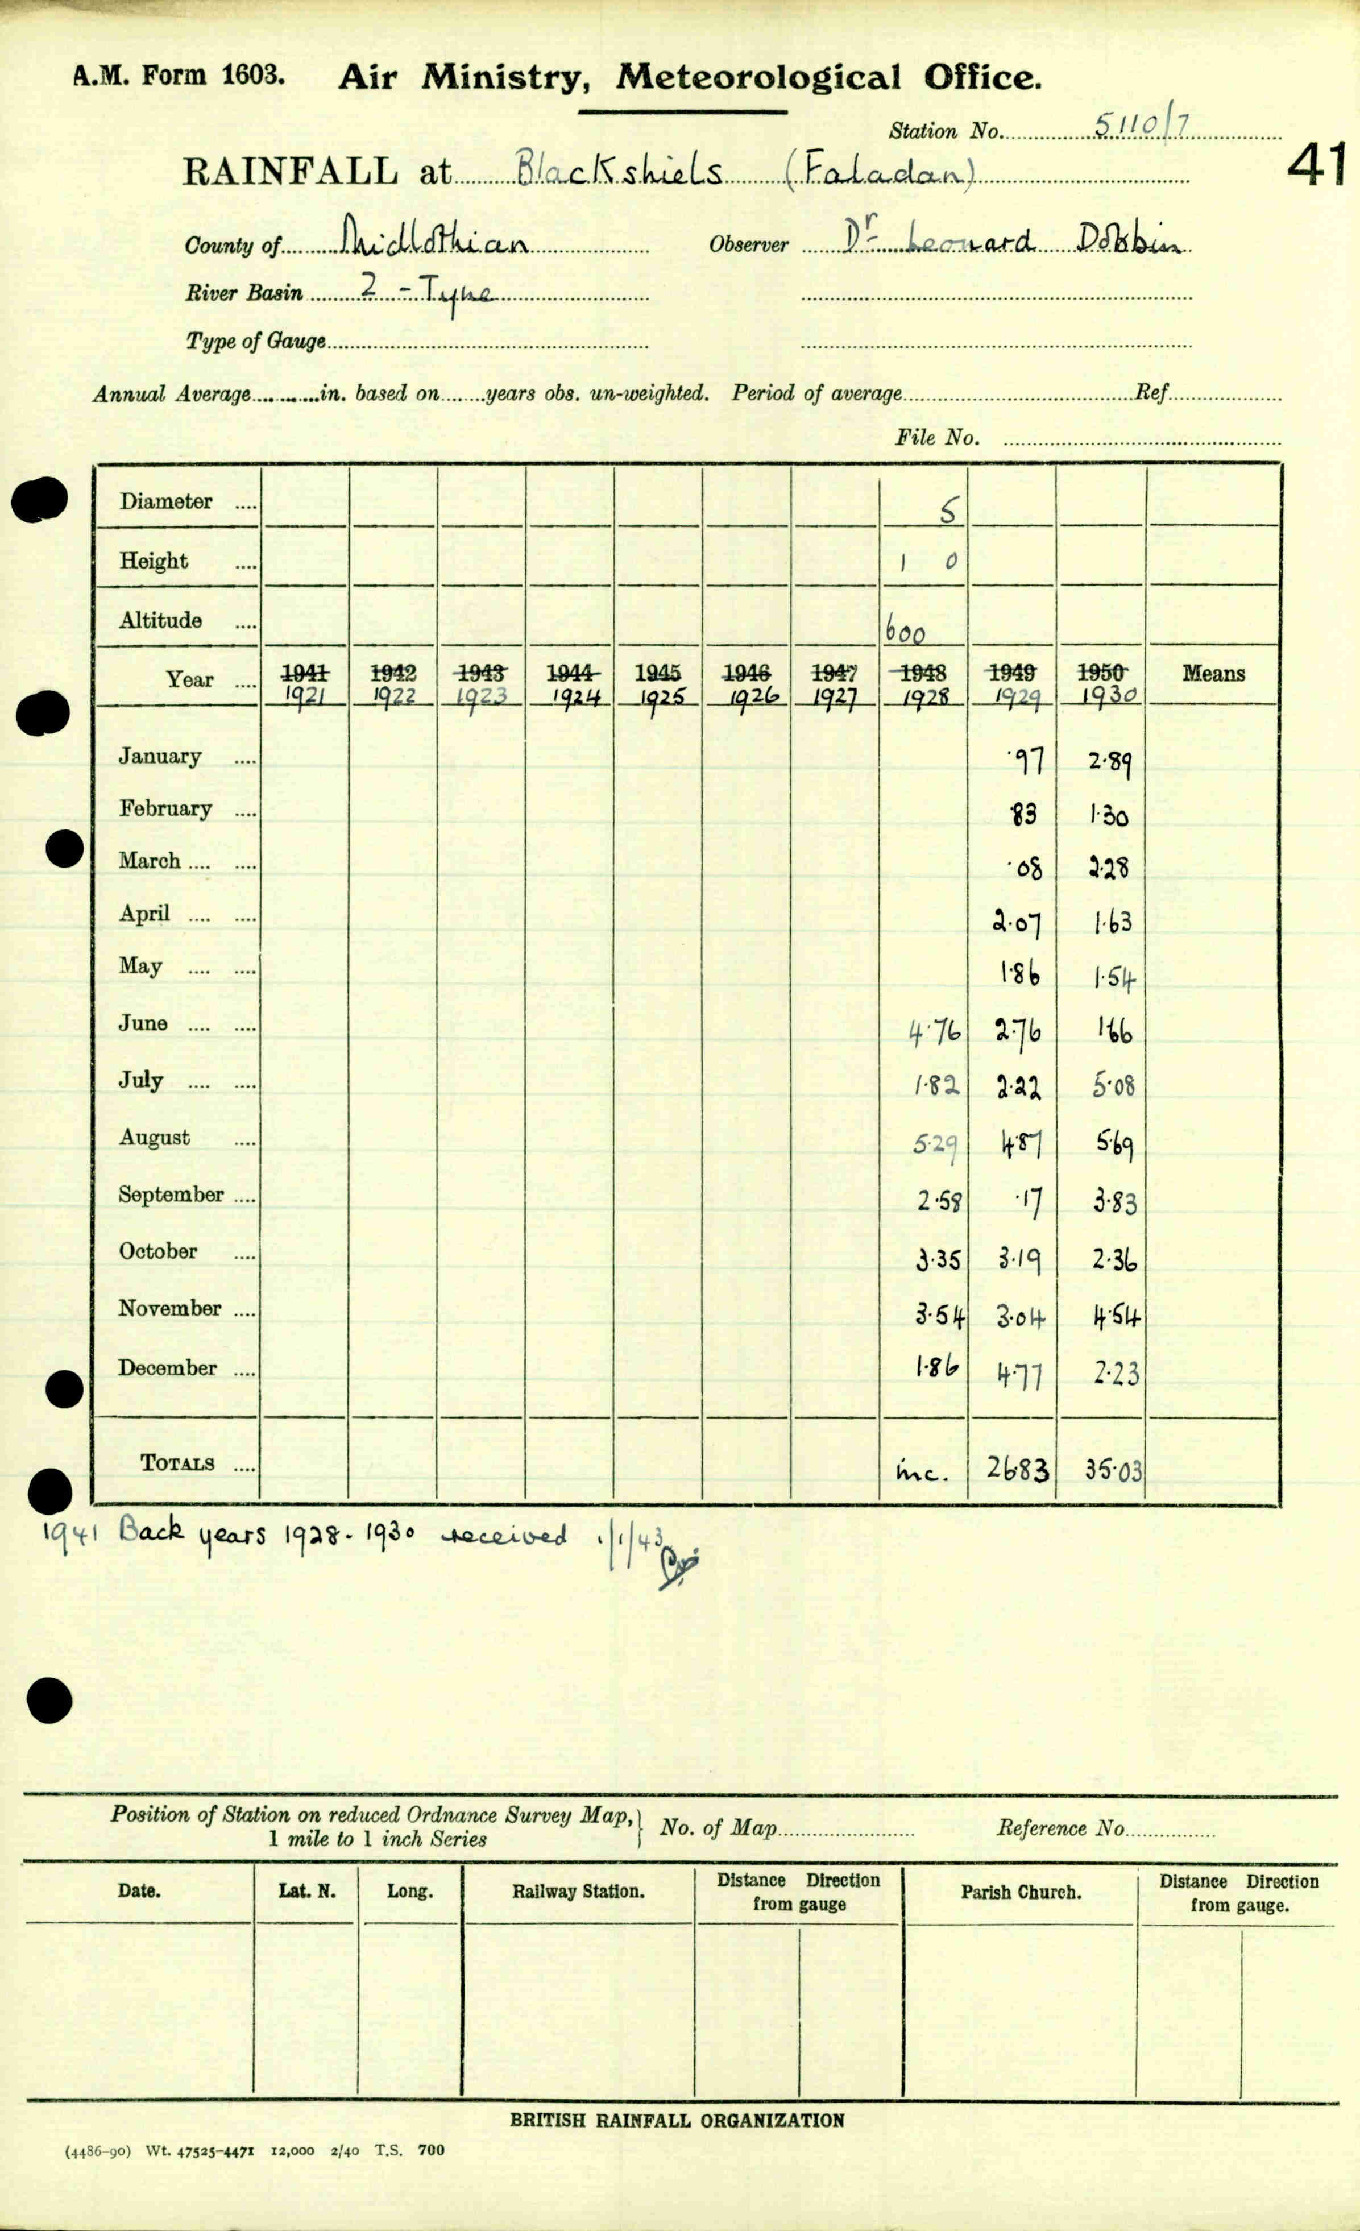 A.M. Form 1603. Air Ministry, Meteorological Office.
Station No. 5110/7
41
RAINFALL at Blackshiels (Faladan)
County of Midlothian Observer Dr Leonard Dobbin
River Basin 2 - Tyne
Type of Gauge
Annual Average in. based on years obs. un-weighted. Period of average Ref.
File No.
Diameter .... 5
Height .... 1 0
Altitude .... 600
Year .... 1941 1942 1943 1944 1945 1946 1947 1948 1949 1950 Means
1921 1922 1923 1924 1925 1926 1927 1928 1929 1930
January .... ·97 2·89
February .... ·83 1·30
March .... .... ·08 2·28
April .... .... 2·07 1·63
May .... .... 1·86 1·54
June .... .... 4·76 2·76 1·66
July .... .... 1·82 2·22 5·08
August .... 5·29 4·87 5·69
September .... 2·58 ·17 3·83
October .... 3·35 3·19 2·36
November .... 3·54 3·04 4·54
December .... 1·86 4·77 2·23
TOTALS .... inc. 26·83 35·03
1941 Back years 1928-1930 received 1/1/43
Position of Station on reduced Ordnance Survey Map,} No. of Map Reference No.
1 mile to 1 inch Series
Date. Lat. N. Long. Railway Station. Distance Direction from gauge Parish Church. Distance Direction from gauge.
BRITISH RAINFALL ORGANIZATION
(4486-90) Wt. 47525-4471 12,000 2/40 T.S. 700